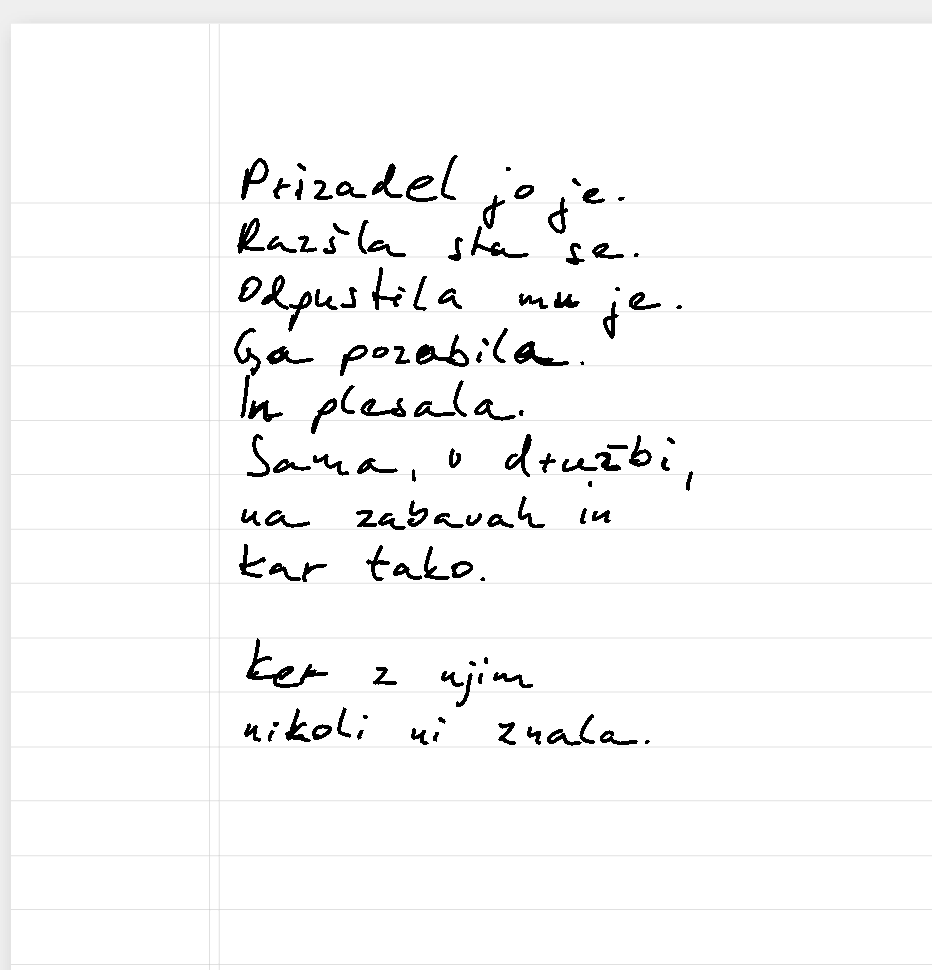 Prizadel jo je.
Razšla sta se.
Odpustila mu je.
Ga pozabila.
In plesala.
Sama, v družbi,
na zabavah in
kar tako.
Ker z njim
nikoli ni znala.